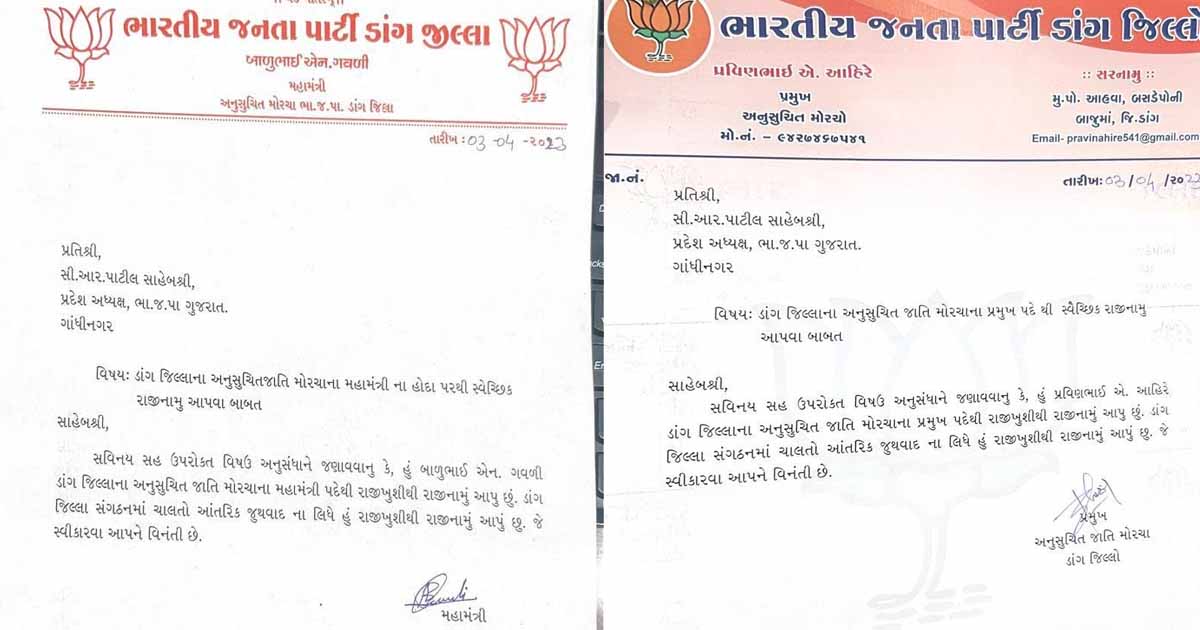 ભારતીય જનતા પાર્ટી ડાંગ જીલ્લા
બાળુભાઈ એન.ગવળી
મહામંત્રી
અનુસુચિત મોરચા ભા.જ.પા. ડાંગ જિલા
તારીખ : 03 -04 -૨૦23
પ્રતિશ્રી,
સી.આર.પાટીલ સાહેબશ્રી,
પ્રદેશ અધ્યક્ષ, ભા.જ.પા ગુજરાત.
ગાંધીનગર
વિષય: ડાંગ જિલ્લાના અનુસુચિતજાતિ મોરચાના મહામંત્રી ના હોદા પરથી સ્વેચ્છિક
રાજીનામુ આપવા બાબત
સાહેબશ્રી,
સવિનય સહ ઉપરોકત વિષઉ અનુસંધાને જણાવવાનુ કે, હું બાળુભાઈ એન. ગવળી
ડાંગ જિલ્લાના અનુસુચિત જાતિ મોરચાના મહામંત્રી પદેથી રાજીખુશીથી રાજીનામું આપુ છું. ડાંગ
જિલ્લા સંગઠનમાં ચાલતો આંતરિક જુથવાદ ના લિધે હું રાજીખુશીથી રાજીનામું આપું છુ. જે
સ્વીકારવા આપને વિનંતી છે.
મહામંત્રી
ભારતીય જનતા પાર્ટી ડાંગ જિલ્લો
પ્રવિણભાઈ એ. આહિરે
પ્રમુખ
અનુસુચિત મોરચો
મો.નં. – ૯૪૨૭૪૬૭૫૪૧
:: સરનામુ ::
મુ.પો. આહવા, બસડેપોની
બાજુમાં, જિ.ડાંગ
Email- pravinahire541@gmail.com
જા.નં.
તારીખ: 03/04 /૨૦૨૩
પ્રતિશ્રી,
સી.આર.પાટીલ સાહેબશ્રી,
પ્રદેશ અધ્યક્ષ, ભા.જ.પા ગુજરાત.
ગાંધીનગર
વિષય: ડાંગ જિલ્લાના અનુસુચિત જાતિ મોરચાના પ્રમુખ પદે થી સ્વૈચ્છિક રાજીનામુ
આપવા બાબત
સાહેબશ્રી,
સવિનય સહ ઉપરોકત વિષઉ અનુસંધાને જણાવવાનુ કે, હું પ્રવિણભાઈ એ. આહિરે
ડાંગ જિલ્લાના અનુસુચિત જાતિ મોરચાના પ્રમુખ પદેથી રાજીખુશીથી રાજીનામું આપુ છું. ડાંગ
જિલ્લા સંગઠનમાં ચાલતો આંતરિક જુથવાદ ના લિધે હું રાજીખુશીથી રાજીનામું આપું છુ. જે
સ્વીકારવા આપને વિનંતી છે.
પ્રમુખ
અનુસુચિત જાતિ મોરચા
ડાંગ જિલ્લો